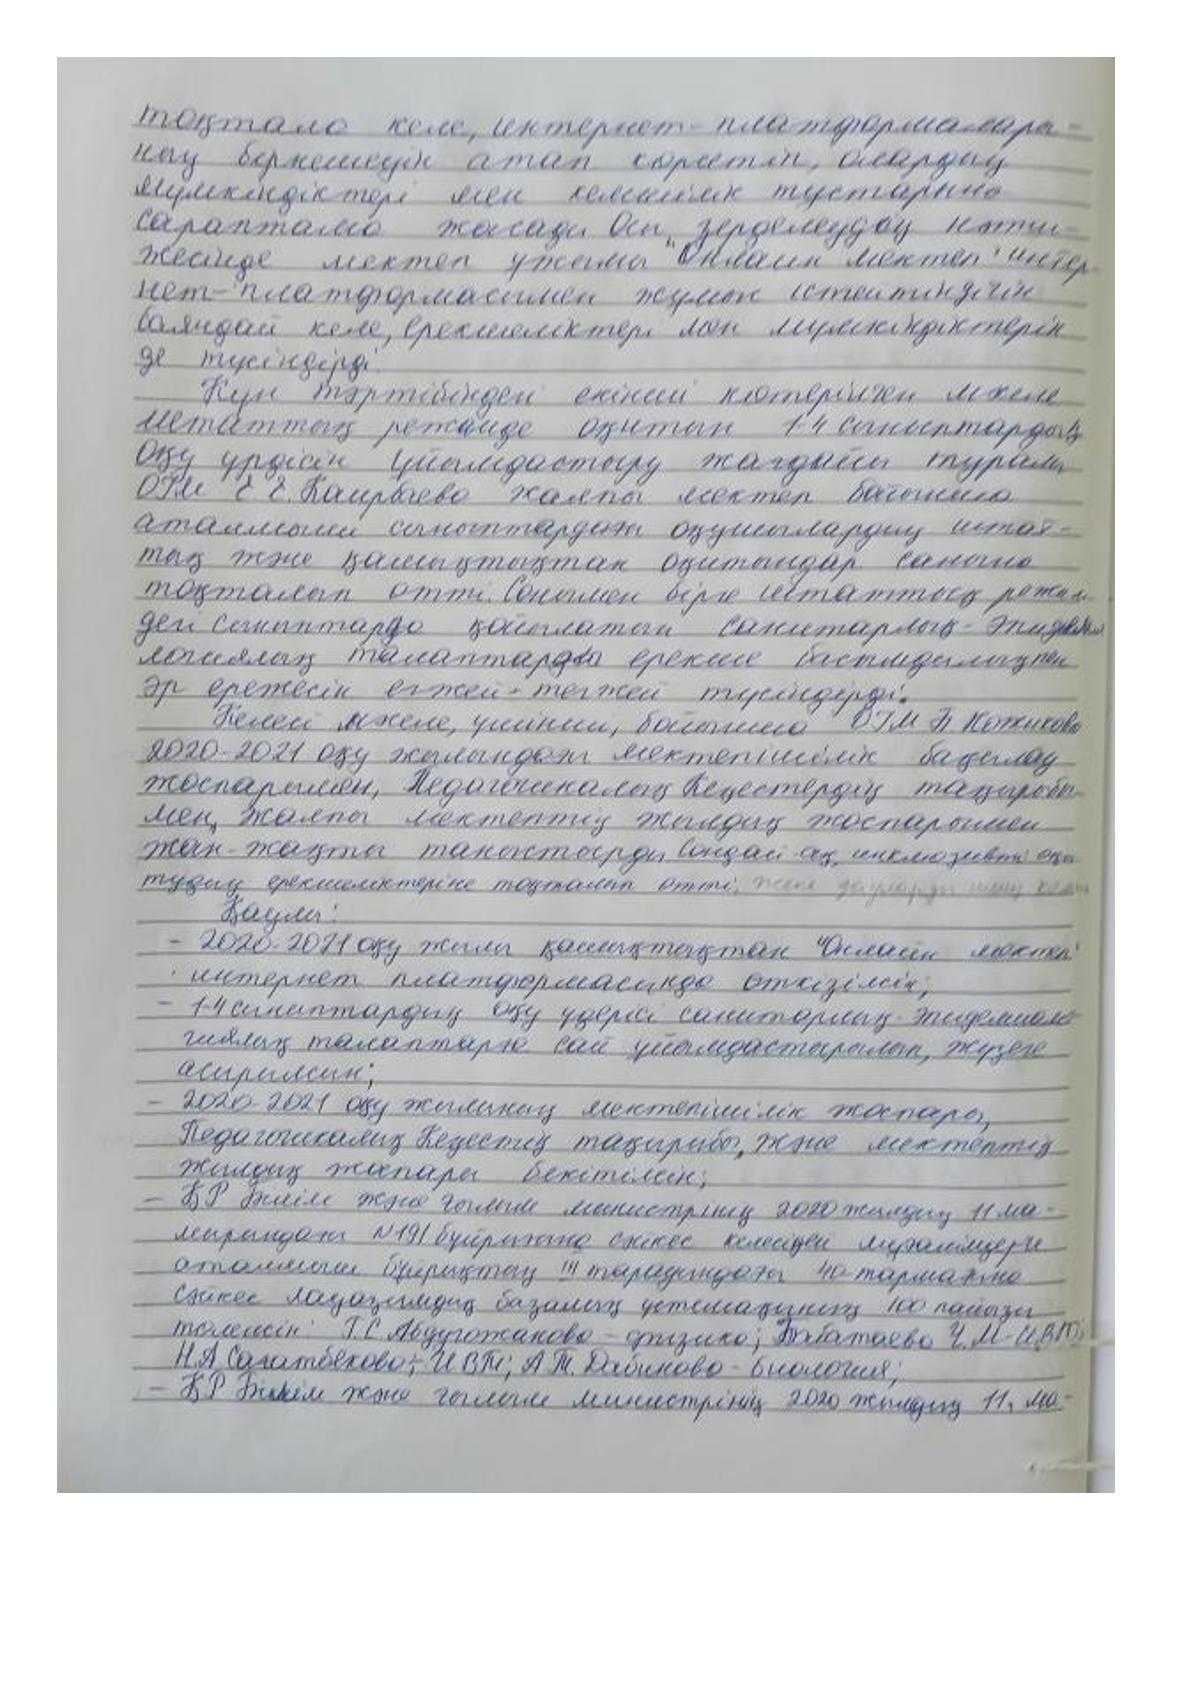 тоқтала келе, интернет-платформалары-
ның біркешегін атап көрсетіп, олардың
мүмкіндіктері мен кемшілік тұстарына
сараптама жасады Осы зерделеудің нәти-
жесінде мектеп ұжымы "Онлайн мектеп" интер-
нет-платформасымен жұмыс істейтіндігін
баяндай келе, ерекшеліктері мен мүмкіндіктерін
де түсіндірді.
Күн тәртібіндегі екінші көтерілген мәселе
штаттық режимде оқитын 1-4 сыныптардың
оқу үрдісін ұйымдастыру жағдайы туралы
ОІМ Е.Е. Каирбаева жалпы мектеп бойынша
аталмыш сыныптардағы оқушылардың штат-
тық және қашықтықтан оқитындар санына
тоқталып өтті. Сонымен бірге штаттық режим-
дегі сыныптарда қойылатын санитарлық-эпидемио
логиялық талаптарды ерекше басымдылықпен
әр ережесін егжей-тегжей түсіндірді.
Келесі мәселе, үшінші, бойынша ОІМ Б Кожикова
2020-2021 оқу жылындағы мектепішілік бақылау
жоспарымен, Педагогикалық Кеңестердің тақырыбы
мен, жалпы мектептің жылдық жоспарымен
жан-жақты таныстырды Сондай-ақ, инклюзивті оқы
тудың ерекшеліктеріне тоқталып өтті.
Қаулы:
- 2020-2021 оқу жылы қашықтықтан "Онлайн мектеп"
интернет платформасында өткізілсін;
- 1-4 сыныптардың оқу үдерісі санитарлық-эпидемиоло
гиялық талаптарға сай ұйымдастырылып, жүзеге
асырылсын;
- 2020-2021 оқу жылының мектепішілік жоспары,
Педагогикалық Кеңестің тақырыбы, және мектептің
жылдық жоспары бекітілсін;
- ҚР Білім және ғылым министрінің 2020 жылдың 11 ма-
мырындағы №191 бұйрығына сәйкес келесідей мұғалімдерге
аталмыш бұйрықтың III тарауындағы 40-тармағына
сәйкес лауазымдық базалық үстемақының 100 пайызы
төленсін: Г.С Абдугожанова - физика; Бабатаева Ч.М-ИВТ;
Н.А Сагатбекова - ИВТ; А.Т. Дабинова - биология;
- ҚР Білім және ғылым министрінің 2020 жылдың 11, ма-